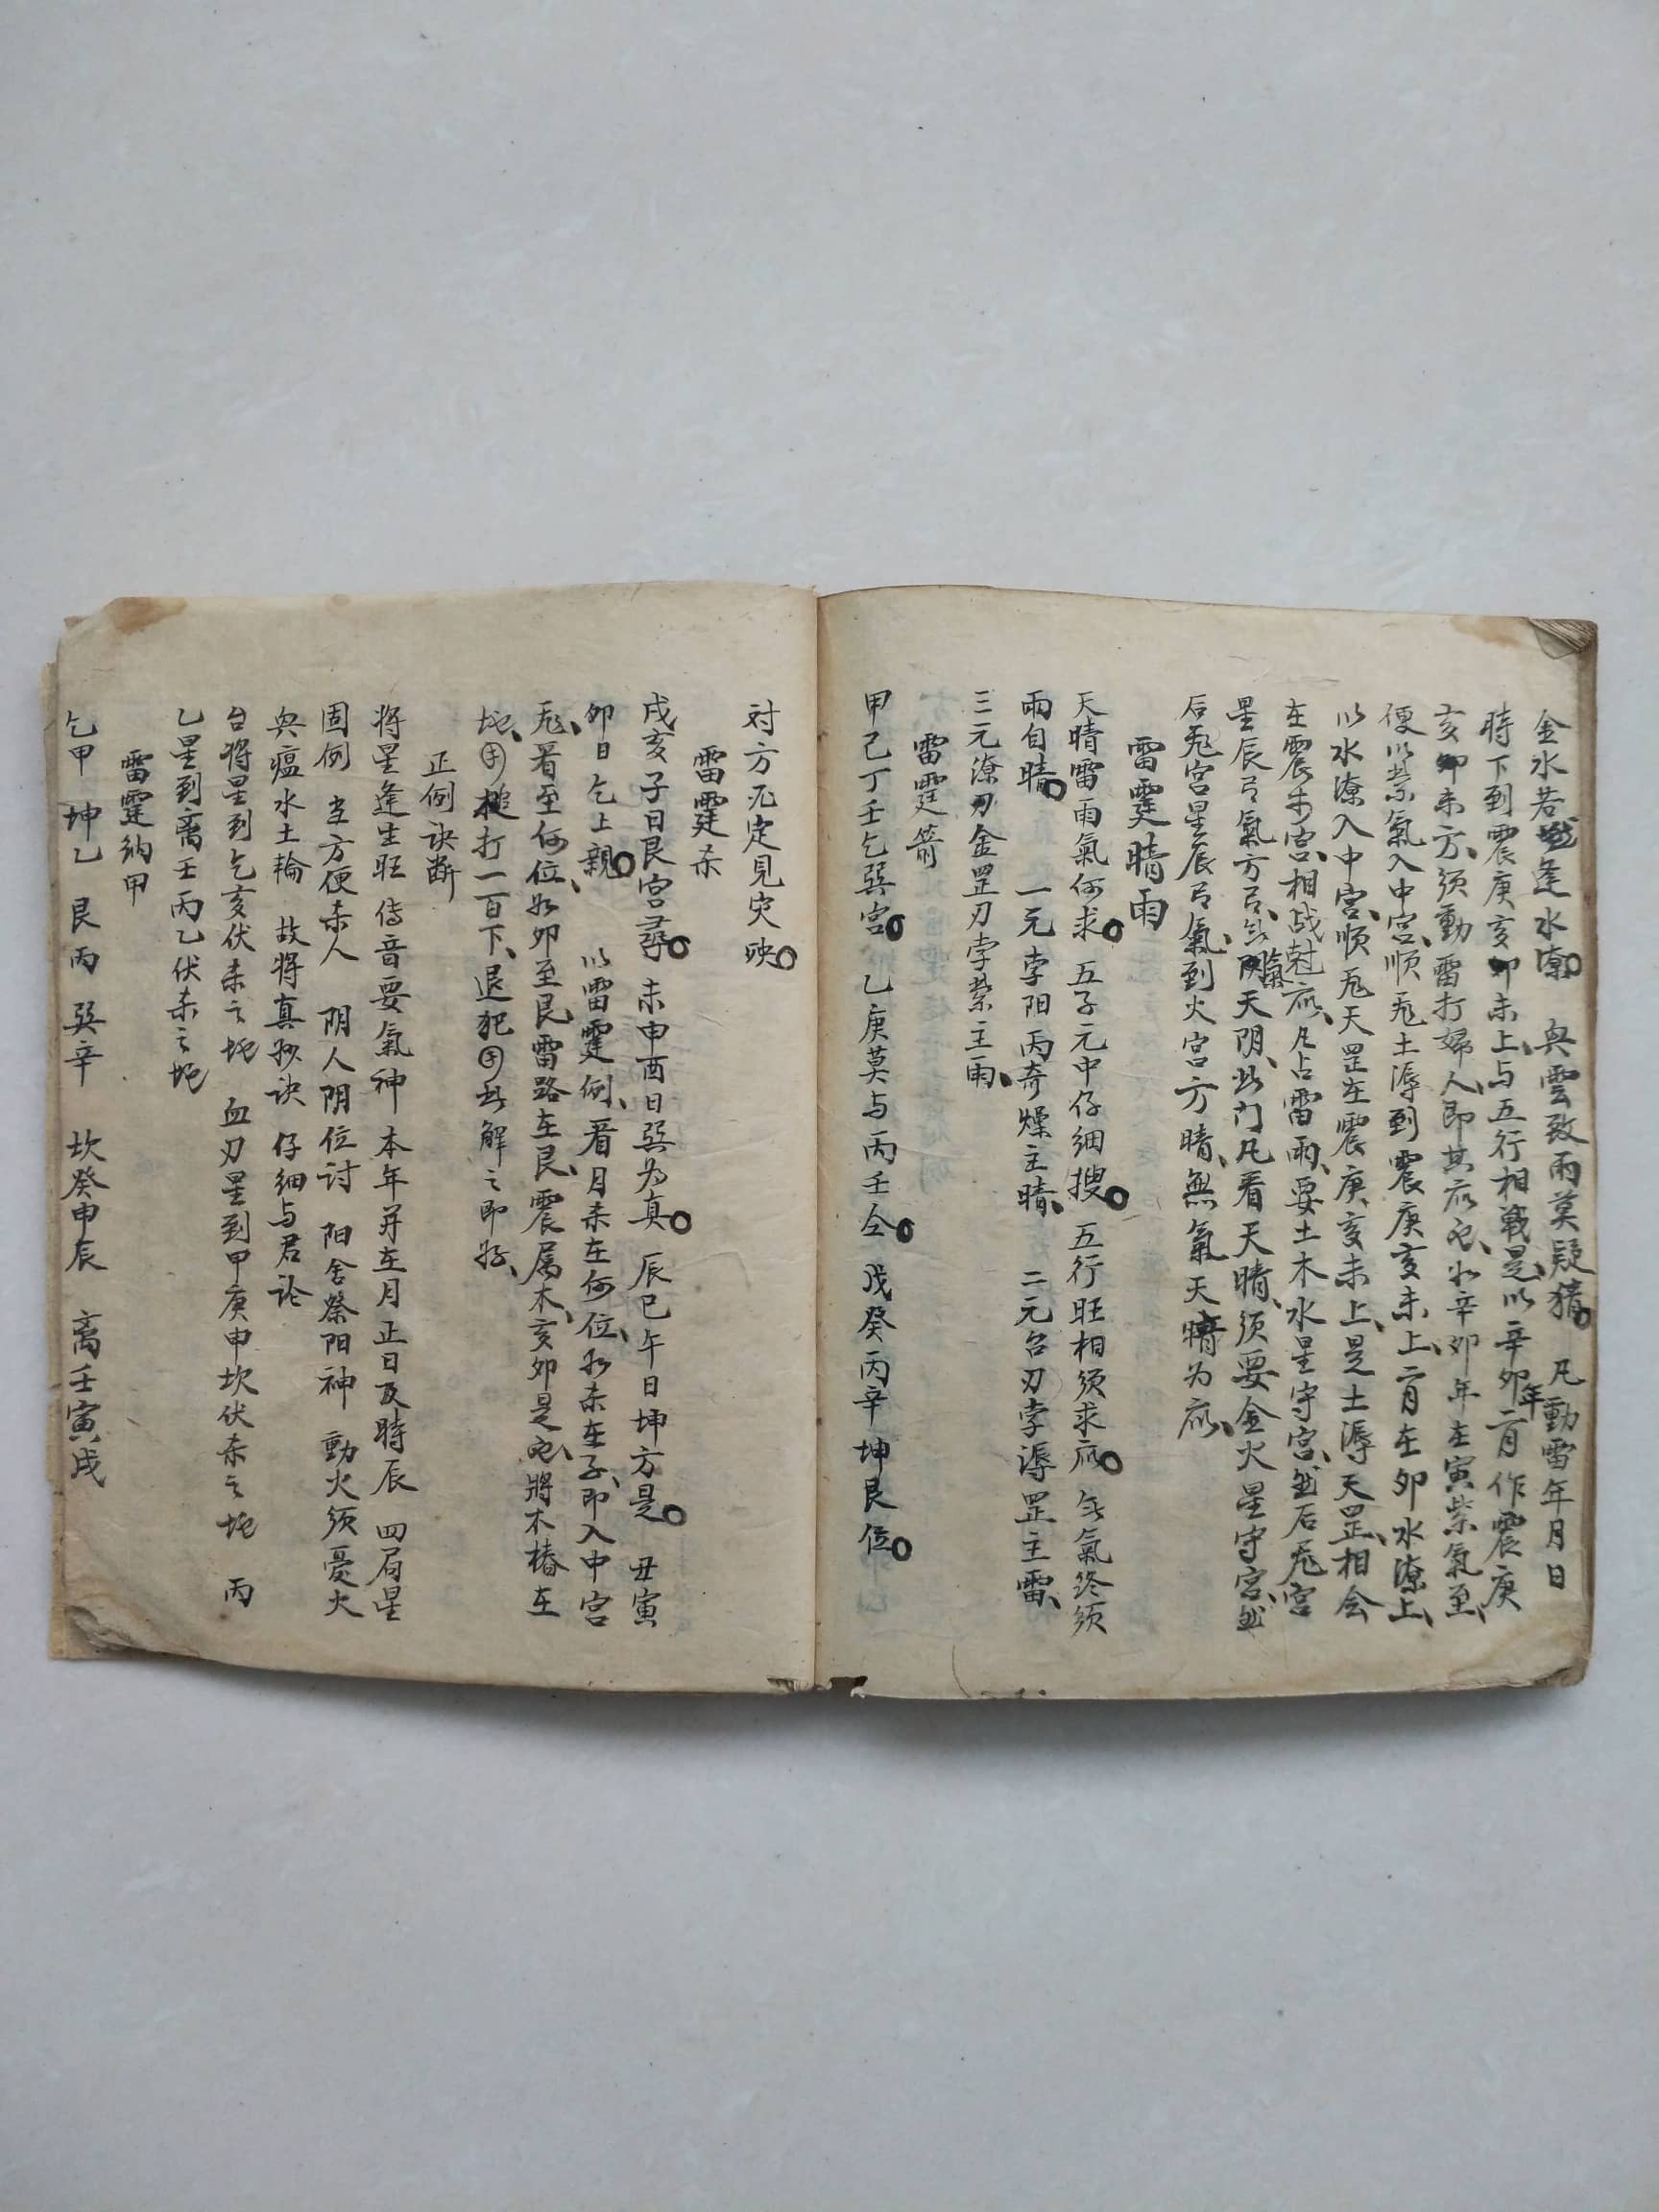 金水若逢水潦 與雲致雨莫疑猜 凡動雷年月日
時下到震庚亥卯未上与五行相戰是以辛卯年二月作震庚
亥卯未方须動雷打婦人即其应也如辛卯年在寅紫氣至
便以紫氣入中宫顺飛土溽到震庚亥未上二月在卯水潦上
以水潦入中宫顺飛天罡在震庚亥未上是土溽天罡相会
在震本宫相战尅应凡占雷雨要土木水星守宫然后飛宫
星辰弓氣方弓氣天阴此门凡看天晴须要金火星守宫然
后飛宫星辰弓氣到火宫方晴無氣天晴为应
雷霆晴雨
天晴雷雨氣何求 五子元中仔细搜 五行旺相须求应 氣终须
雨自晴 一元孛阳丙奇燥主晴 二元台刃孛溽罡主雷
三元潦刃金罡刃孛紫主雨
雷霆箭
甲己丁壬乞巽宫 乙庚莫与丙壬仝 戊癸丙辛坤艮位
对方无定見灾殃
雷霆杀
戌亥子日艮宫尋 未申酉日巽为真 辰巳午日坤方是 丑寅
卯日乞上親 以雷霆例看月杀在何位如杀在子即入中宫
飛看至何位如卯至艮雷路在艮震属木亥卯是也將木椿在
地槌打一百下退犯解之即好
正例诀断
将星逢生旺 侍音要氣神 本年并在月 正日及時辰 四局星
固例 主方便杀人 阴人阴位讨 阳舍祭阳神 動火须憂火
與瘟水土輪 故将真妙诀 仔细与君论
台將星到乞亥伏杀之地 血刃星到甲庚申坎伏杀之地 丙
乙星到离壬丙乙伏杀之地
雷霆纳甲
乞甲 坤乙 艮丙 巽辛 坎癸申辰 离壬寅戌